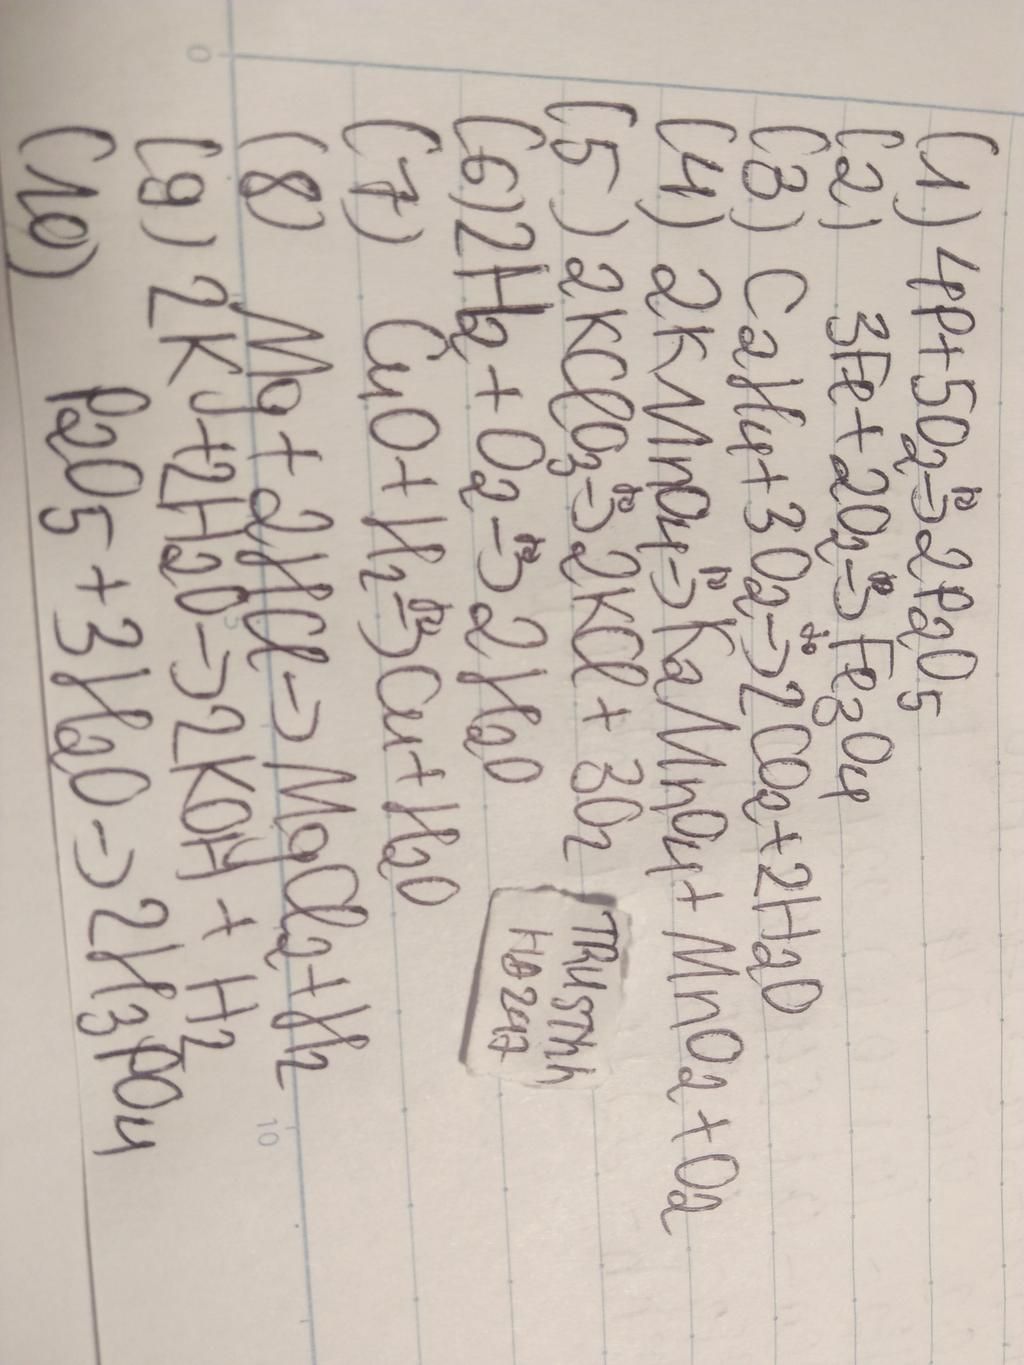 (1) 4P+5O2 -t°-> 2P2O5
(2) 3Fe+2O2 -t°-> Fe3O4
(3) C2H4+3O2 -t°-> 2CO2+2H2O
(4) 2KMnO4 -t°-> K2MnO4+MnO2+O2
(5) 2KClO3 -t°-> 2KCl+3O2
(6) 2H2+O2 -t°-> 2H2O
(7) CuO+H2 -t°-> Cu+H2O
(8) Mg+2HCl -> MgCl2+H2
(9) 2K+2H2O -> 2KOH+H2
(10) P2O5+3H2O -> 2H3PO4
0
5
10